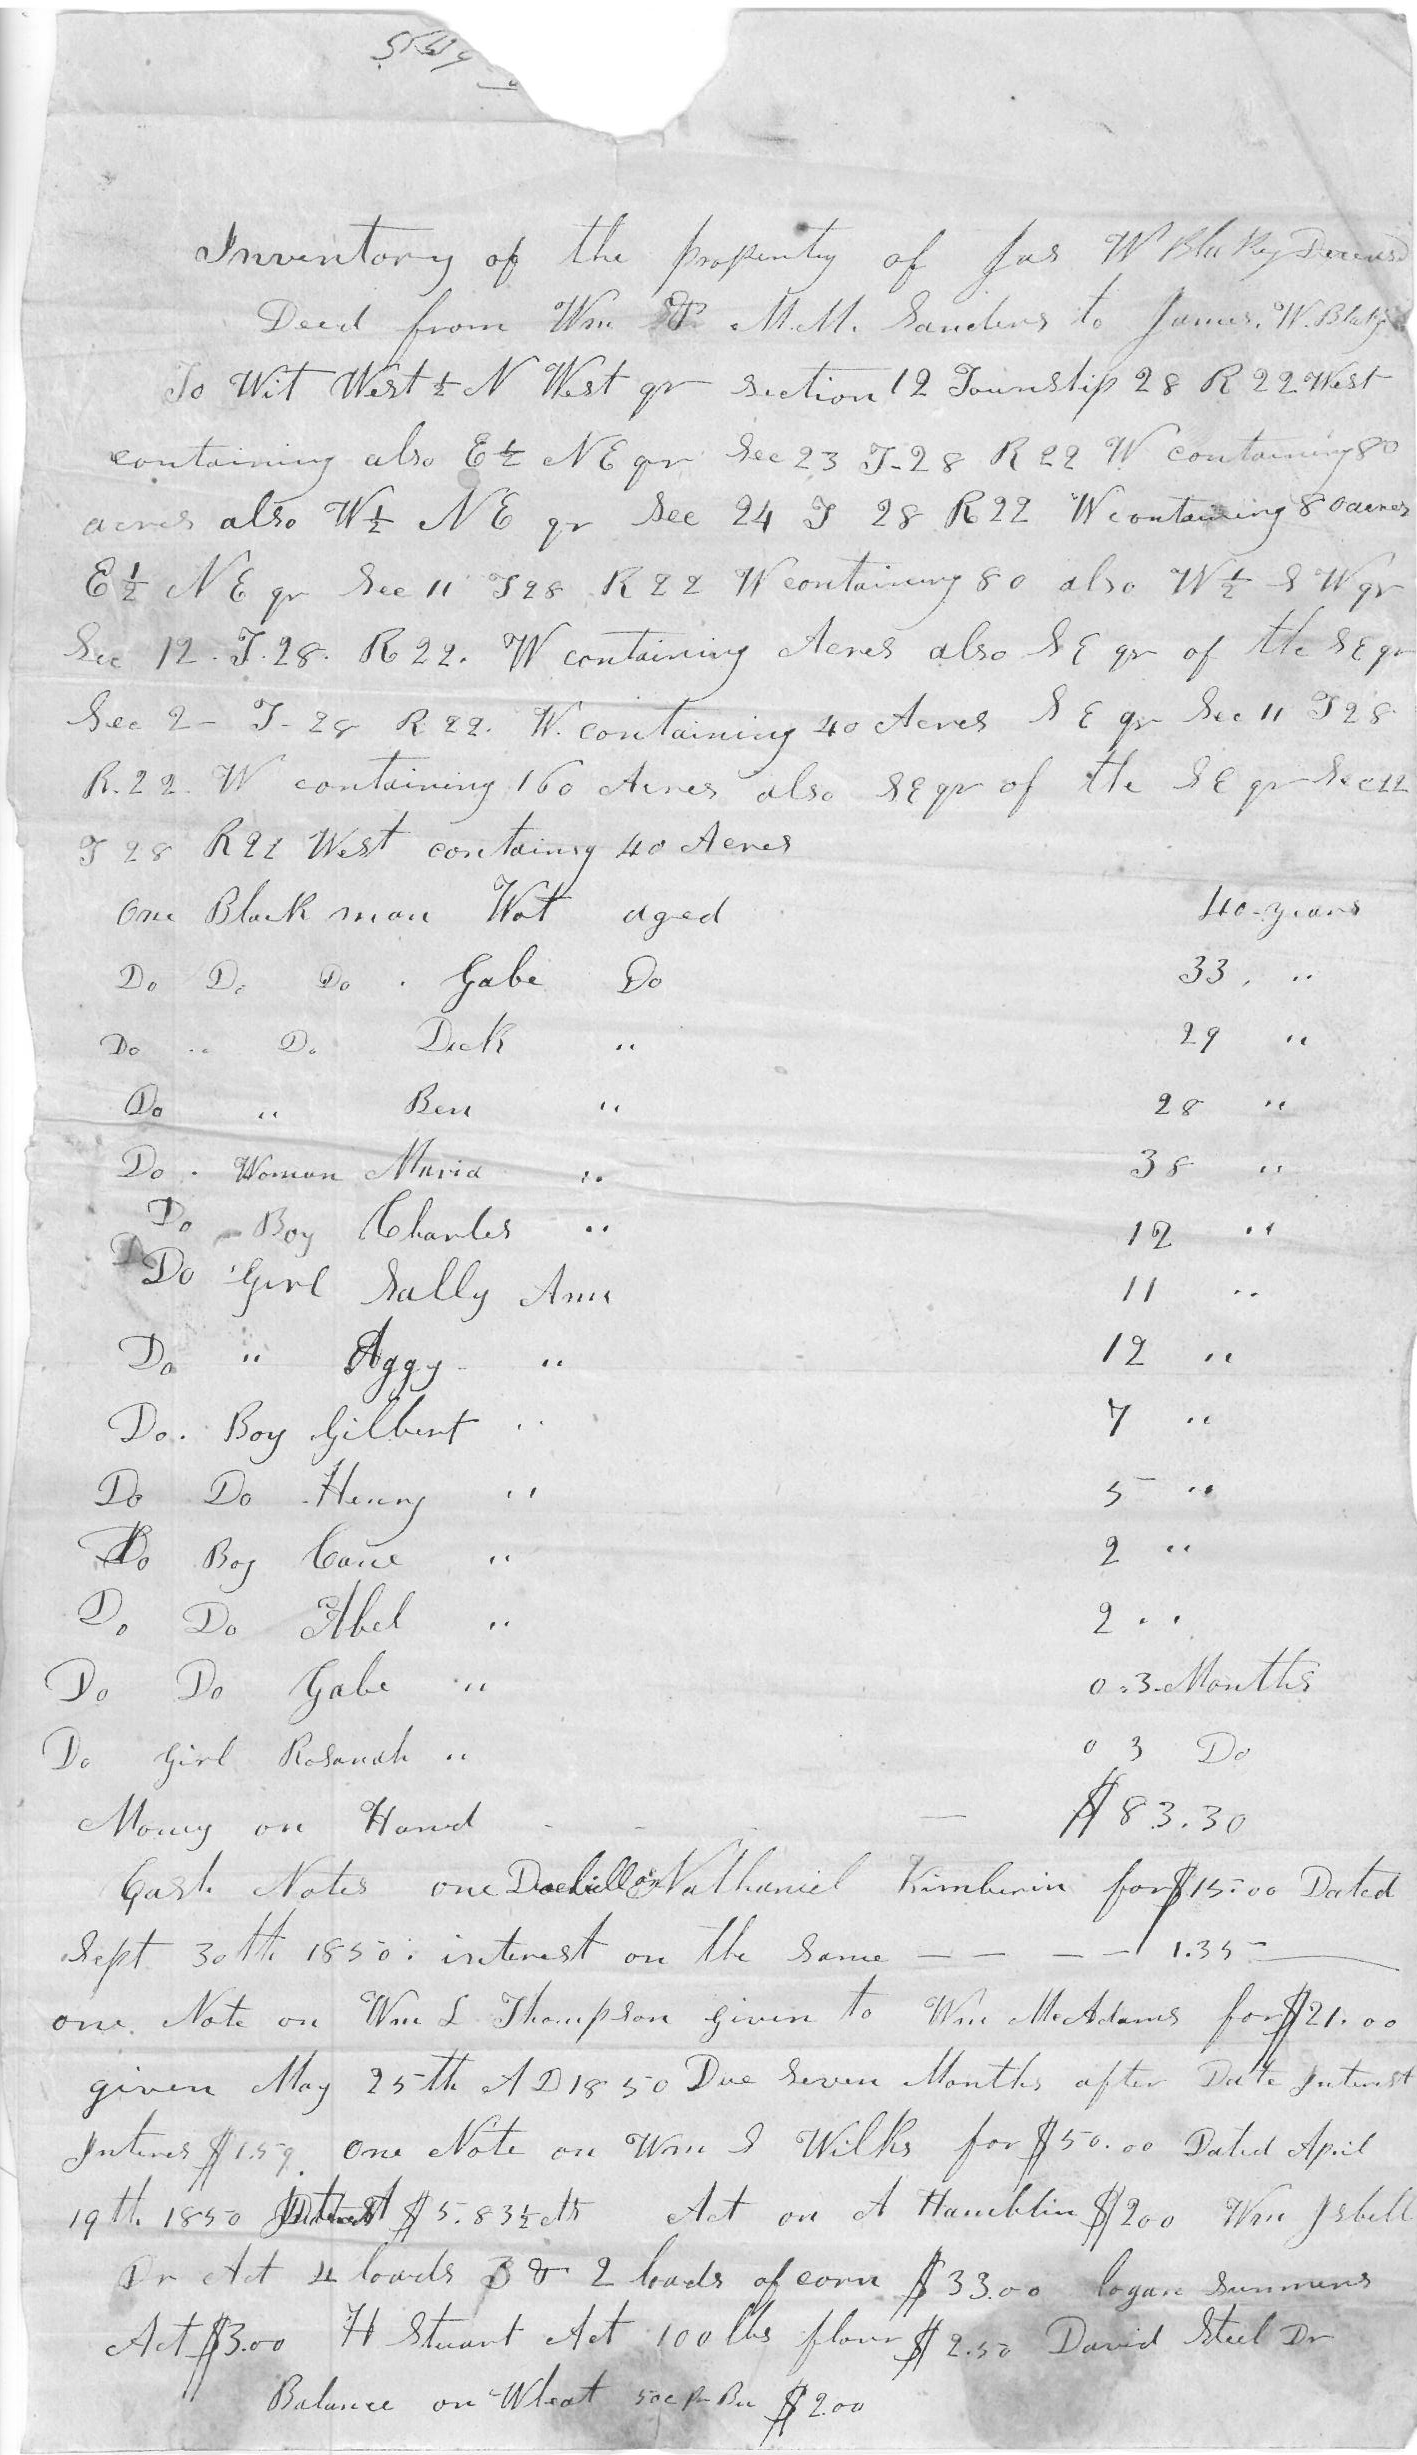 Inventory of the propenty of Jas W Blakey Deceasd
Deed from Wm M.M. Sanders to James. W. Blakey
To Wit West ½ N West qr section 12 Township 28 R 22 West
containing also E ½ N E qr Sec 23 T-28 R 22 W containing 80
acres also W ½ N E qr Sec 24 T 28 R 22 W containing 80 acres
E ½ N E qr Sec 11 T 28 R 22 W containing 80 also W ½ S W qr
Sec 12. T. 28. R 22. W containing Acres also S E qr of the S E qr
Sec 2 - T - 28 R 22. W. containing 40 Acres S E qr Sec 11 T 28
R. 22. W containing 160 Acres also S E qr of the S E qr Sec 12
T 28 R 22 West containg 40 Acres
One Black man Wat aged 40 years
Do Do Do. Gabe Do 33. "
Do " Do Dick " 29 "
Do " Ben " 28 "
Do. Woman Maria " 38 "
Do - Boy Charles " 12 "
Do Girl Sally Ann 11 "
Do " Aggy " 12 "
Do. Boy Gilbert " 7 "
Do Do Henry " 5 "
Do Boy Cane " 2 "
Do Do Abel " 2 "
Do Do Gabe " 0.3. Months
Do Girl Rosanah " 0 3 Do
Money on Hand - - - — $83.30
Cash Notes one Duebill on Nathaniel Kimberin for $15.00 Dated
Sept 30th 1850: interest on the same — — — — 1.35 —
one Note on Wm L Thompson given to Wm McAdams for $21.00
given May 25th A D 1850 Due Seven Months after Date Interest
Interes $1.59. One Note on Wm S Wilks for $50.00 Dated April
19th 1850 Interest $5.83½ cts Act on A Hamblin $200 Wm Isbell
Dr Act 4 loads 3 & 2 loads of corn $33.00 logan Summers
Act $3.00 H Stuart Act 100 lbs flour $2.50 David Steel Dr
Balance on Wheat 50c Pr Bu $2.00